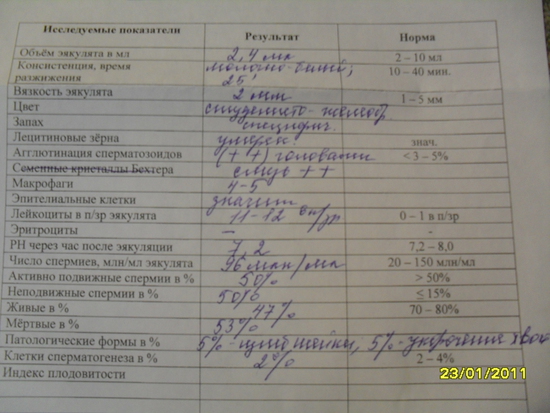 Исследуемые показатели Результат Норма
Объём эякулята в мл 2,4 мл 2 – 10 мл
Консистенция, время разжижения молочно-белый; 25' 10 – 40 мин.
Вязкость эякулята 2 мм 1 – 5 мм
Цвет
Запах специфич.
Лецитиновые зёрна умерен. знач.
Агглютинация сперматозоидов (++) головками < 3 – 5%
Семенные кристаллы Бехтера слизь ++
Макрофаги 4-5
Эпителиальные клетки значит
Лейкоциты в п/зр эякулята 11-12 в п/зр 0 – 1 в п/зр
Эритроциты – -
РН через час после эякуляции 7,2 7,2 – 8,0
Число спермиев, млн/мл эякулята 96 млн/мл 20 – 150 млн/мл
Активно подвижные спермии в % 50% > 50%
Неподвижные спермии в % 50% ≤ 15%
Живые в % 47% 70 – 80%
Мёртвые в % 53%
Патологические формы в % 5%- шейки, 5%-укорочение
Клетки сперматогенеза в % 2% 2 – 4%
Индекс плодовитости
23/01/2011